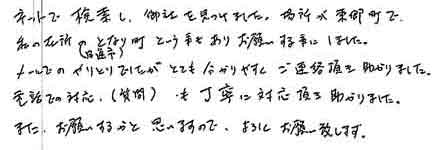 ネットで検索し、御社を見つけました。場所が東郷町で、
私の住所(日進市)となり町という事もありお願いする事にしました。
メールでのやりとりでしたがとても分かりやすくご連絡頂き助かりました。
電話での対応、(質問)も丁寧に対応頂き助かりました。
また、お願いするかと思いますので、よろしくお願い致します。